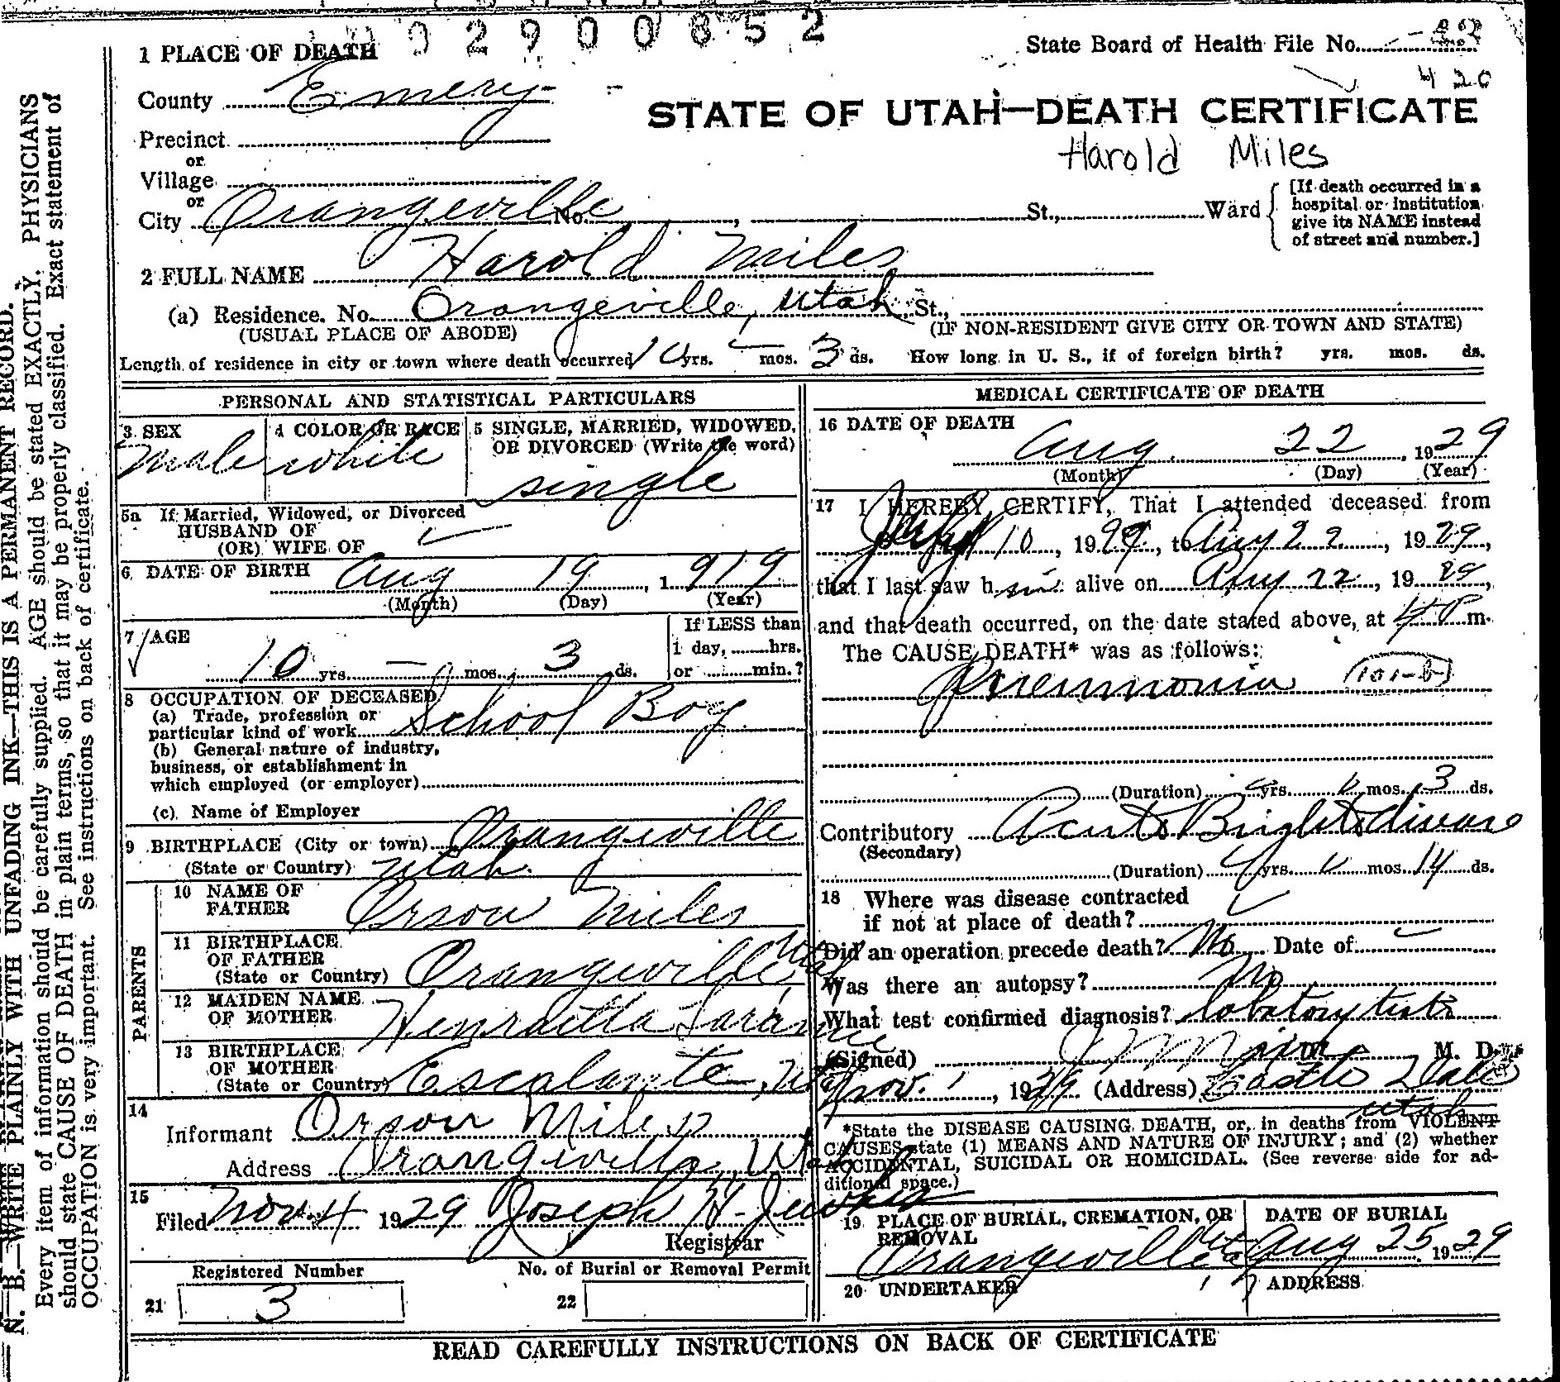 0 2 9 0 0 8 5 2
1 PLACE OF DEATH
State Board of Health File No. 43
420
County Emery
STATE OF UTAH—DEATH CERTIFICATE
Harold Miles
Precinct
or
Village
or
City Orangeville No. , St., Ward
[If death occurred in a
hospital or institution
give its NAME instead
of street and number.]
2 FULL NAME Harold Miles
(a) Residence. No. Orangeville, Utah St.,
(USUAL PLACE OF ABODE) (IF NON-RESIDENT GIVE CITY OR TOWN AND STATE)
Length of residence in city or town where death occurred 10 yrs. — mos. 3 ds. How long in U. S., if of foreign birth? yrs. mos. ds.
PERSONAL AND STATISTICAL PARTICULARS
3 SEX
Male
4 COLOR OR RACE
white
5 SINGLE, MARRIED, WIDOWED,
OR DIVORCED (Write the word)
single
5a If Married, Widowed, or Divorced
HUSBAND OF
(OR) WIFE OF
6 DATE OF BIRTH Aug 19, 1919
(Month) (Day) (Year)
7 AGE
10 yrs. — mos. 3 ds.
If LESS than
1 day, hrs.
or min.?
8 OCCUPATION OF DECEASED
(a) Trade, profession or
particular kind of work School Boy
(b) General nature of industry,
business, or establishment in
which employed (or employer)
(c) Name of Employer
9 BIRTHPLACE (City or town) Orangeville
(State or Country) Utah.
PARENTS
10 NAME OF
FATHER Orson Miles
11 BIRTHPLACE
OF FATHER
(State or Country) Orangeville Utah
12 MAIDEN NAME
OF MOTHER Henraitta
13 BIRTHPLACE
OF MOTHER
(State or Country) Escalante, Utah
14
Informant Orson Miles
Address Orangeville, Utah
15
Filed Nov. 4 1929 Joseph H. Jewkes
Registrar
Registered Number
21 3
No. of Burial or Removal Permit
22
MEDICAL CERTIFICATE OF DEATH
16 DATE OF DEATH
Aug. 22, 1929
(Month) (Day) (Year)
17 I HEREBY CERTIFY, That I attended deceased from
10, 1929, to Aug 22, 1929,
that I last saw him alive on Aug 22, 1929,
and that death occurred, on the date stated above, at m.
The CAUSE DEATH* was as follows:
Pneumonia 101-b
(Duration) yrs. mos. 3 ds.
Contributory Acute Brights disease
(Secondary)
(Duration) yrs. mos. 14 ds.
18 Where was disease contracted
if not at place of death?
Did an operation precede death? No Date of
Was there an autopsy? No
What test confirmed diagnosis?
(Signed) M. D.
Nov. 1, 1929 (Address) Castle Dale
Utah
*State the DISEASE CAUSING DEATH, or, in deaths from VIOLENT
CAUSES state (1) MEANS AND NATURE OF INJURY; and (2) whether
ACCIDENTAL, SUICIDAL OR HOMICIDAL. (See reverse side for ad-
ditional space.)
19 PLACE OF BURIAL, CREMATION, OR
REMOVAL
Orangeville
DATE OF BURIAL
Aug 25, 1929
20 UNDERTAKER
ADDRESS
READ CAREFULLY INSTRUCTIONS ON BACK OF CERTIFICATE
N. B.—WRITE PLAINLY WITH UNFADING INK—THIS IS A PERMANENT RECORD.
Every item of information should be carefully supplied. AGE should be stated EXACTLY. PHYSICIANS
should state CAUSE OF DEATH in plain terms, so that it may be properly classified. Exact statement of
OCCUPATION is very important. See instructions on back of certificate.